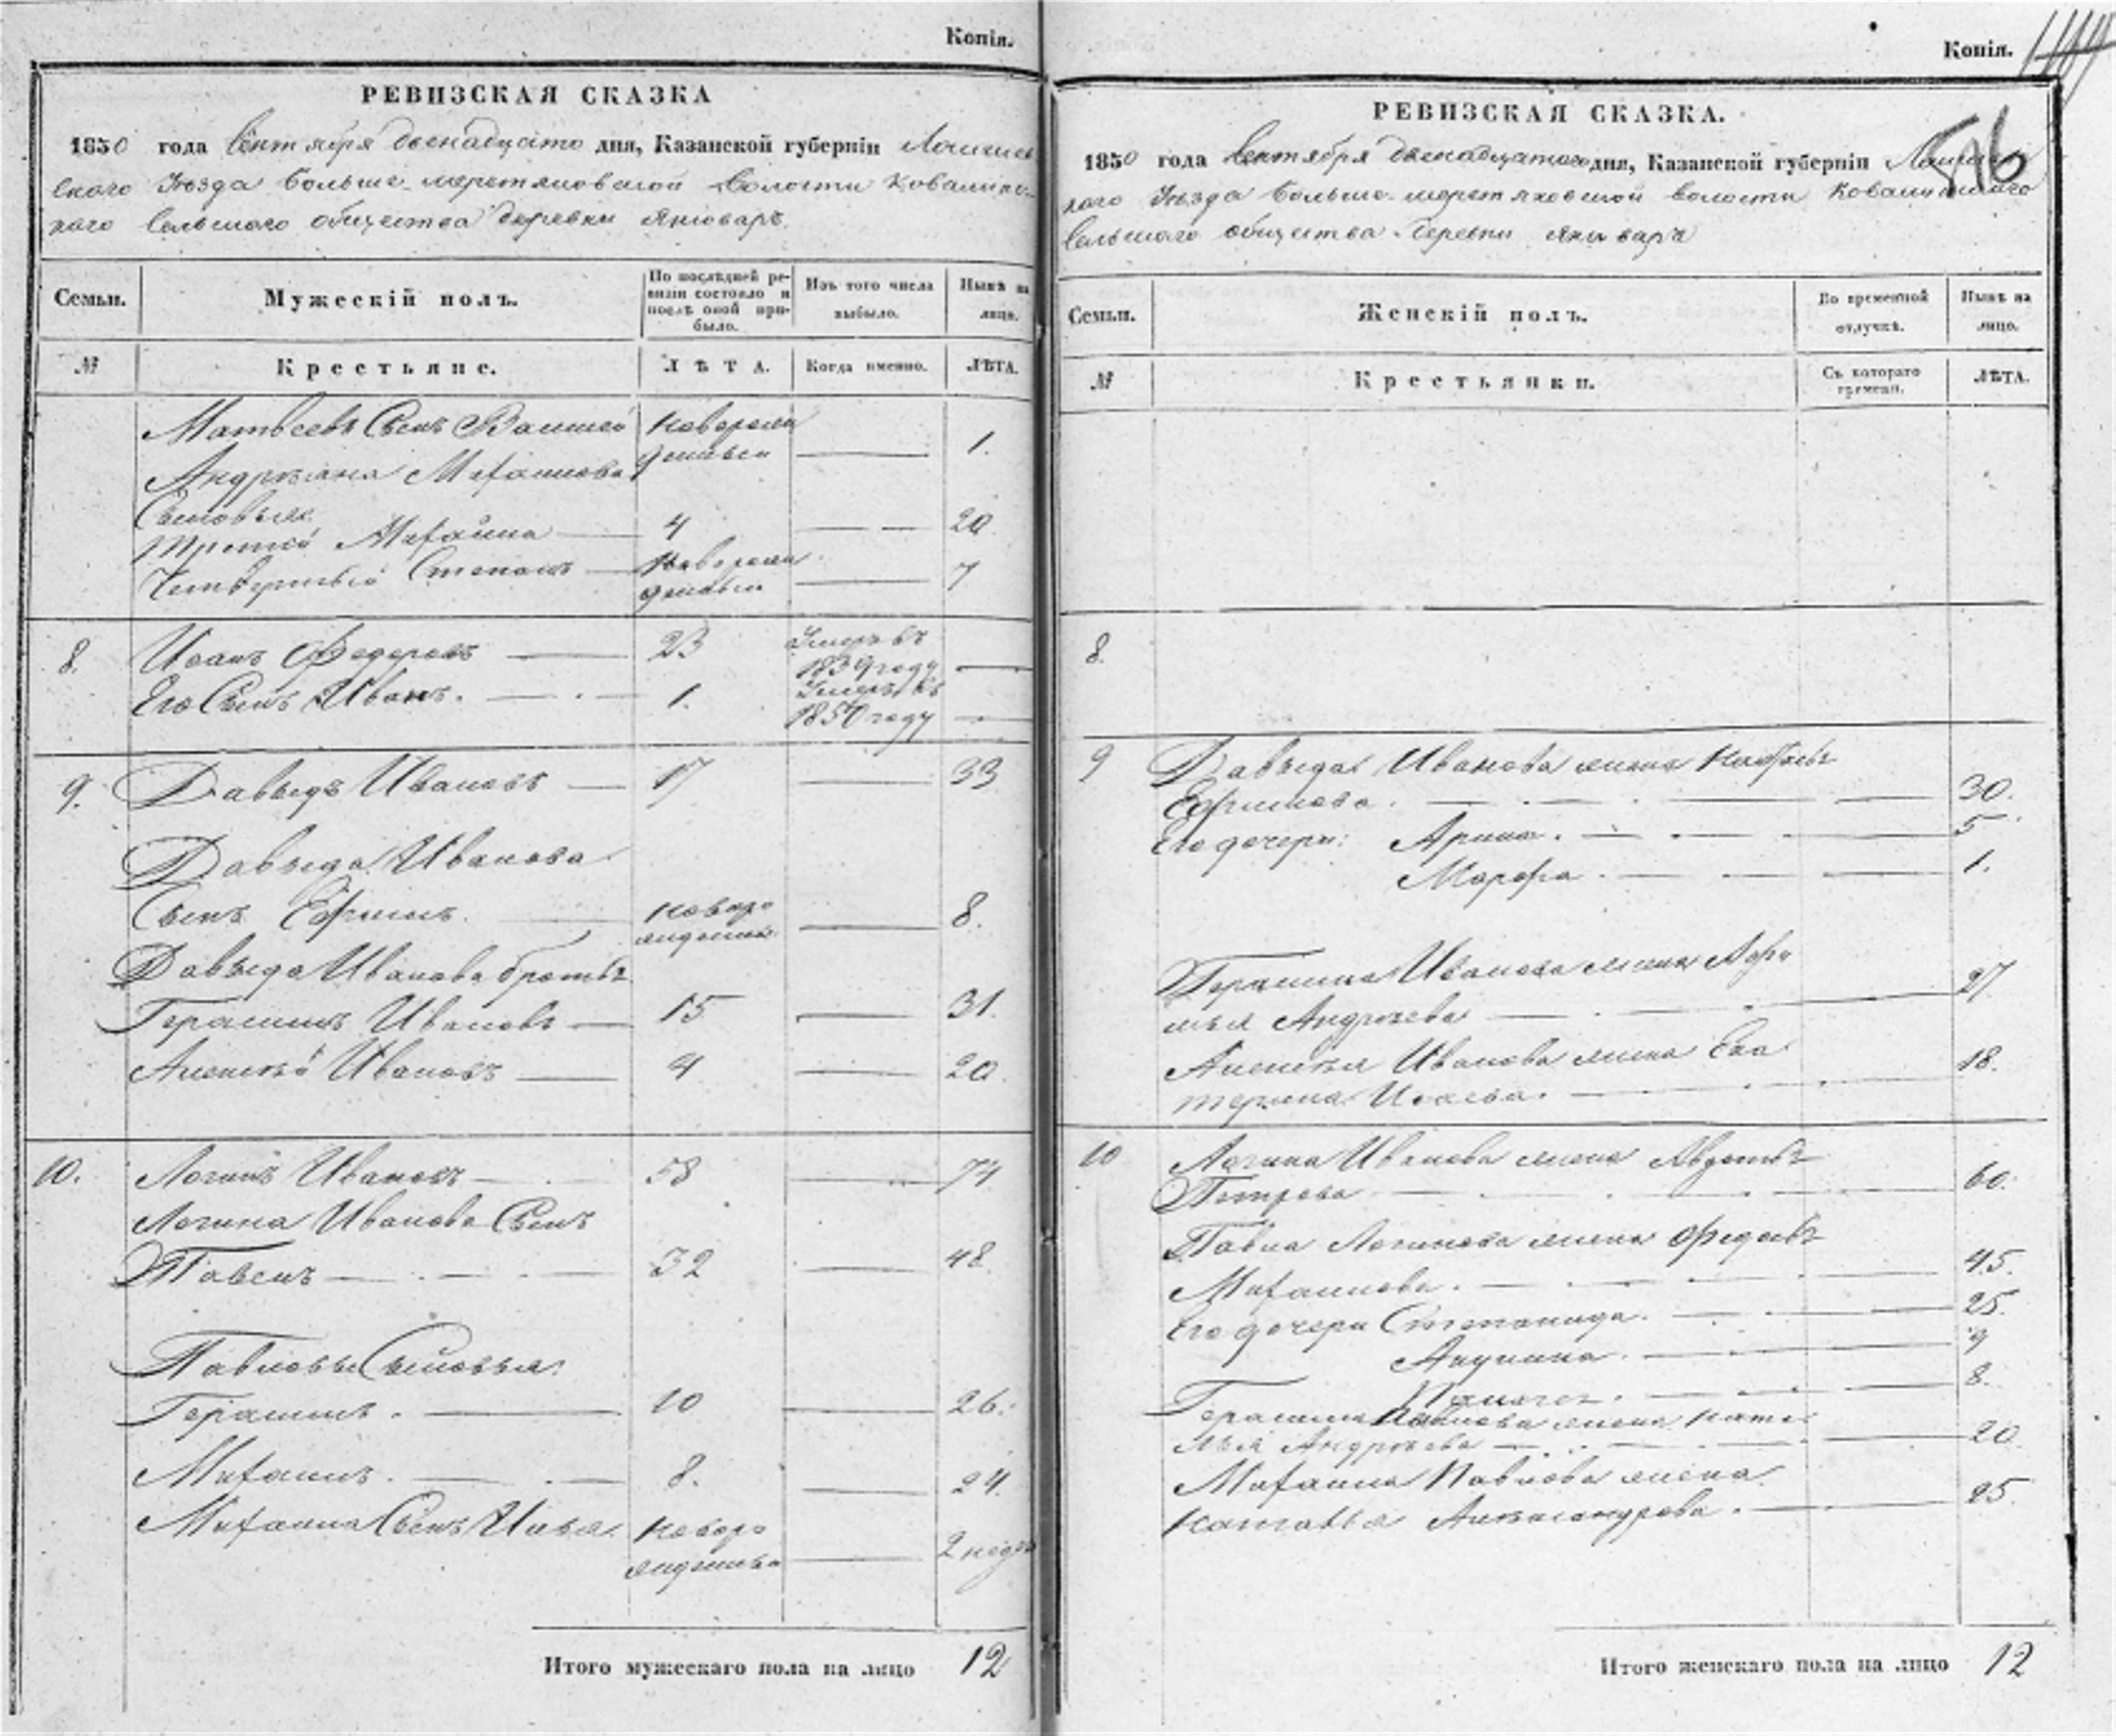 Копія.
РЕВИЗСКАЯ СКАЗКА
1850 года Сентября двенадцато дня, Казанской губерніи Лаишев
скаго Уѣзда Больше-меретяковской волости Ковалинс-
каго Сельскаго общества деревни Янюваръ.
Семьи. Мужескій полъ. По послѣдней ре-
визіи состояло и
послѣ оной при-
было. Изъ того числа
выбыло. Нынѣ на
лицо.
№ Крестьяне. ЛѢТА. Когда именно. ЛѢТА.
Матвеевъ Сынъ новорож
денный 1.
Андреяна Михайлова
Сыновья:
третій Михайла 4 20
Четвертый Степанъ новорож
денный 7
8. Исакъ Федоровъ 23 Умеръ въ
1839 году
Его Сынъ Иванъ. 1. Умеръ въ
1850 году
9. Давыдъ Ивановъ 17 33
Давыда Иванова
Сынъ Ефимъ новоро
жденный 8.
Давыда Иванова братья
Герасимъ Ивановъ 15 31.
Алексѣй Ивановъ 4 20.
10. Логинъ Ивановъ 58 74
Логина Иванова Сынъ
Павелъ 32 48.
Павловы Сыновья:
Герасимъ. 10 26.
Михаилъ. 8. 24.
Михаила Сынъ Илья. новоро
жденный 2 недѣл
Итого мужескаго пола на лицо 12
Копія.
516
РЕВИЗСКАЯ СКАЗКА.
1850 года Сентября двенадцатого дня, Казанской губерніи Лаишевс
каго Уѣзда Больше-меретяковской волости Ковалинскаго
Сельскаго общества деревни Янюваръ
Семьи. Женскій полъ. Во временной
отлучкѣ. Нынѣ на
лицо.
№ Крестьянки. Съ котораго
времени. ЛѢТА.
8.
9 Давыда Иванова жена
Ефимова. 30.
Его дочери: Арина. 5
Марфа. 1.
Герасима Иванова жена
Андреева 27
Алексѣя Иванова жена Ека
терина Исаева. 18.
10 Логина Иванова жена Авдотья
Петрова 60.
Павла Логинова жена Федосья
Михайлова. 45.
Его дочери Степанида. 25.
Акулина. 9
8.
Герасима Павлова жена Ната
лья Андреева 20
Михаила Павлова жена
Наталья Александрова. 25.
Итого женскаго пола на лицо 12